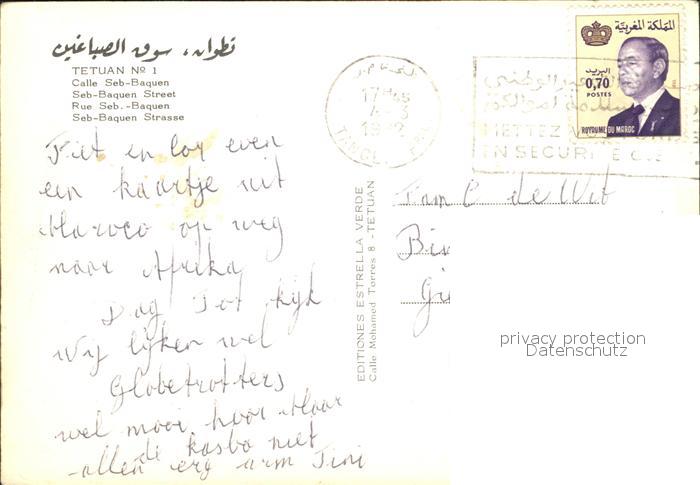 تطوان، سوق الصباغين
TETUAN Nº 1
Calle Seb-Baquen
Seb-Baquen Street
Rue Seb.-Baquen
Seb-Baquen Strasse
Piet en Loy even
een kaartje uit
Maroco op weg
naar Afrika
Dag Tot kijk
Wij lijken wel
Globetrotters
wel mooi hoor Maar
de kasba niet
-allen erg arm Tini
EDITIONES ESTRELLA VERDE
Calle Mohamed Torres 8 - TETUAN
17H45
المملكة المغربية
البريد
0,70
POSTES
ROYAUME DU MAROC
METTEZ
EN SECURITE
Fam de Wit
privacy protection
Datenschutz